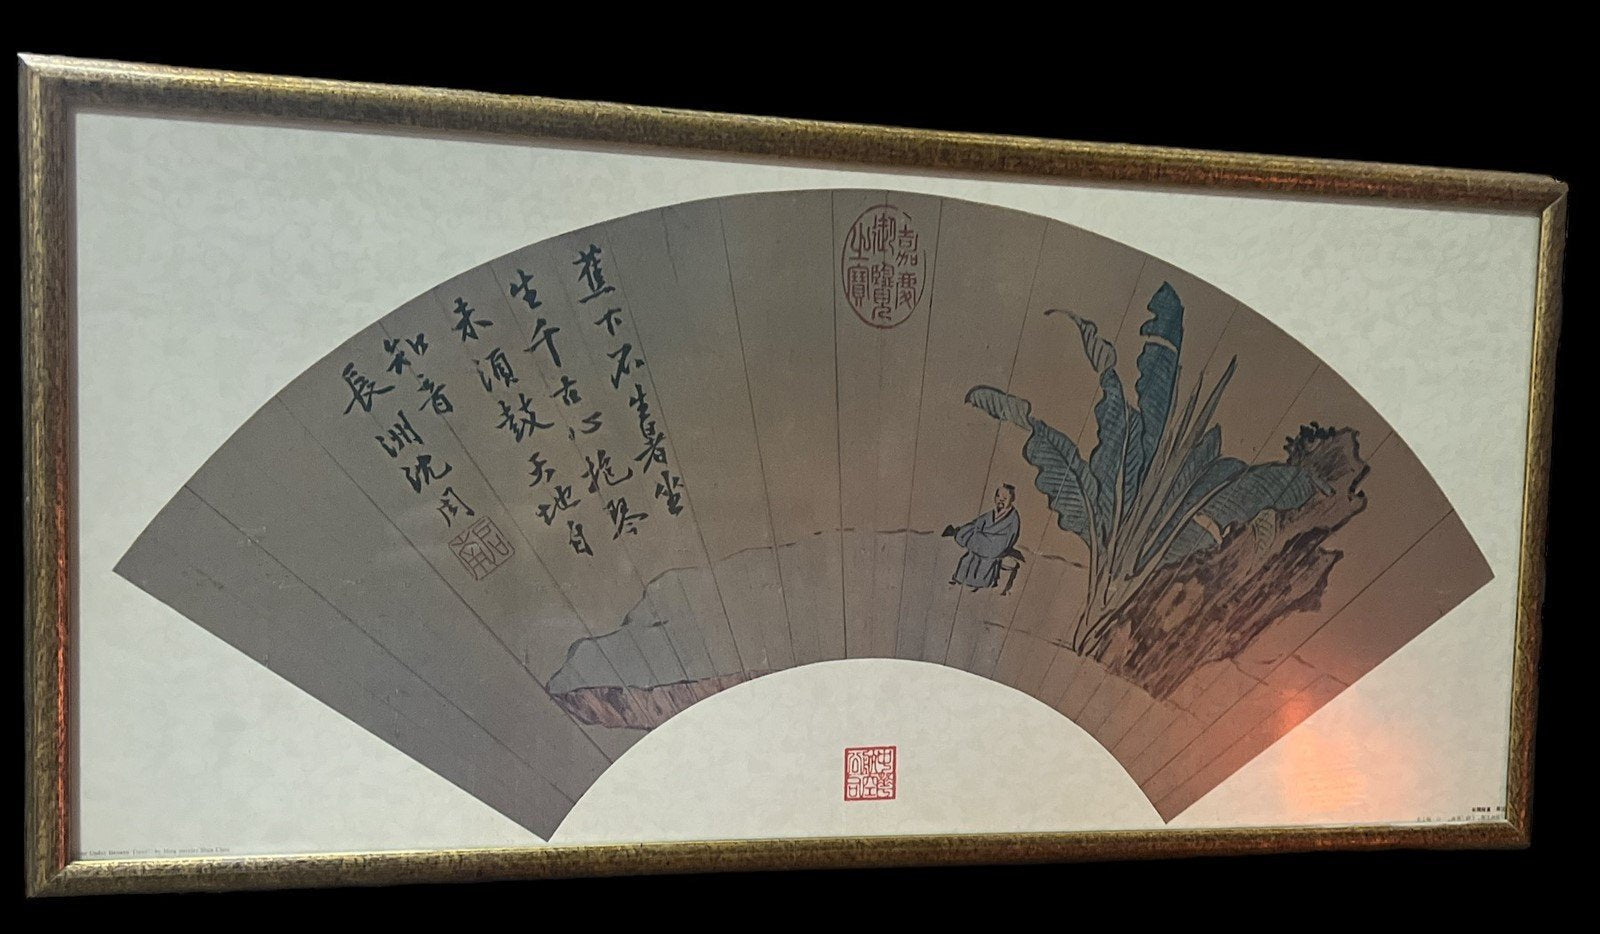 蕉下不生暑坐
生千古心抱琴
未須鼓天地自
知音
長洲沈周
啟南
嘉慶
御覽
之寶
中華
航空
公司
Under Banana by Ming